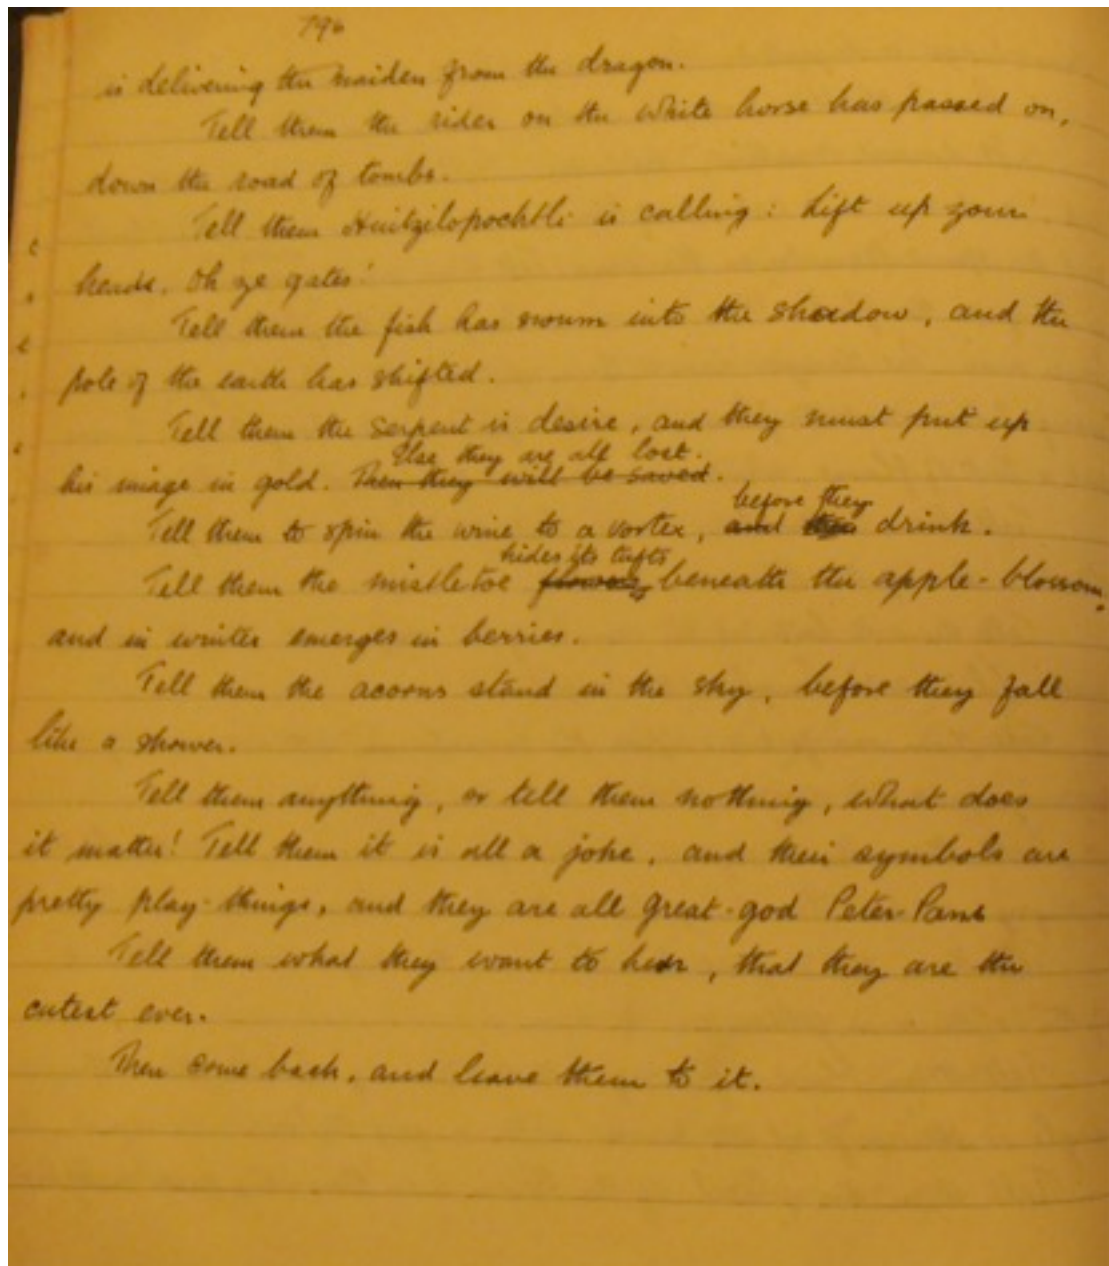 796
is delivering the maiden from the dragon.
Tell them the rider on the white horse has passed on,
down the road of tombs.
Tell them Huitzilopochtli is calling: Lift up your
heads. Oh ye gates!
Tell them the fish has swum into the shadow, and the
pole of the earth has shifted.
Tell them the serpent is desire, and they must put up
Else they are all lost.
his image in gold. Then they will be saved.
before they
Tell them to spin the wine to a vortex, and drink.
hides its tufts
Tell them the mistletoe flowers beneath the apple-blossom,
and in winter emerges in berries.
Tell them the acorns stand in the sky, before they fall
like a shower.
Tell them anything, or tell them nothing, what does
it matter! Tell them it is all a joke, and their symbols are
pretty play-things, and they are all great-god Peter-Pans
Tell them what they want to hear, that they are the
cutest ever.
Then come back, and leave them to it.